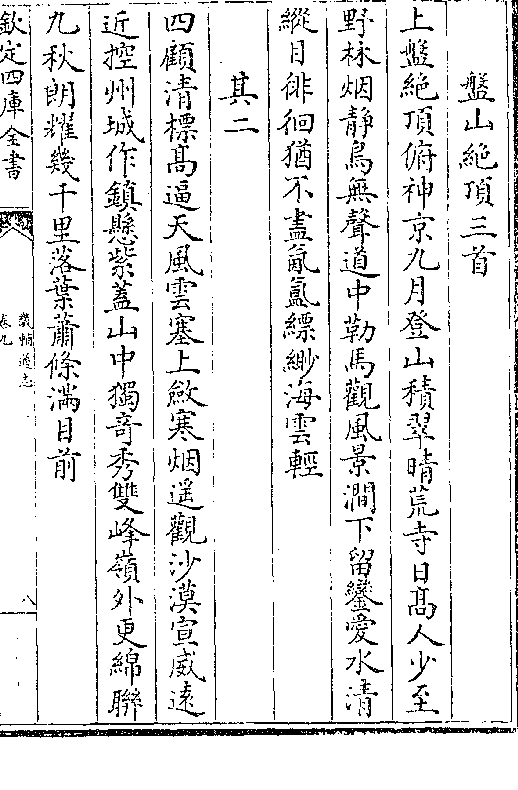 盤山絶頂三首
上盤絶頂俯神京九月登山積翠晴荒寺日髙人少至
野林烟靜鳥無聲道中勒馬觀風景澗下留鑾愛水清
縱目徘徊猶不盡氤氲縹緲海雲輕
其二
四顧清標髙逼天風雲塞上斂寒烟遥觀沙漠宣威逺
近控州城作鎮懸紫葢山中獨竒秀雙峰嶺外更綿聯
九秋朗耀幾千里落葉蕭條滿目前
欽定四庫全書
畿輔通志
卷九
八